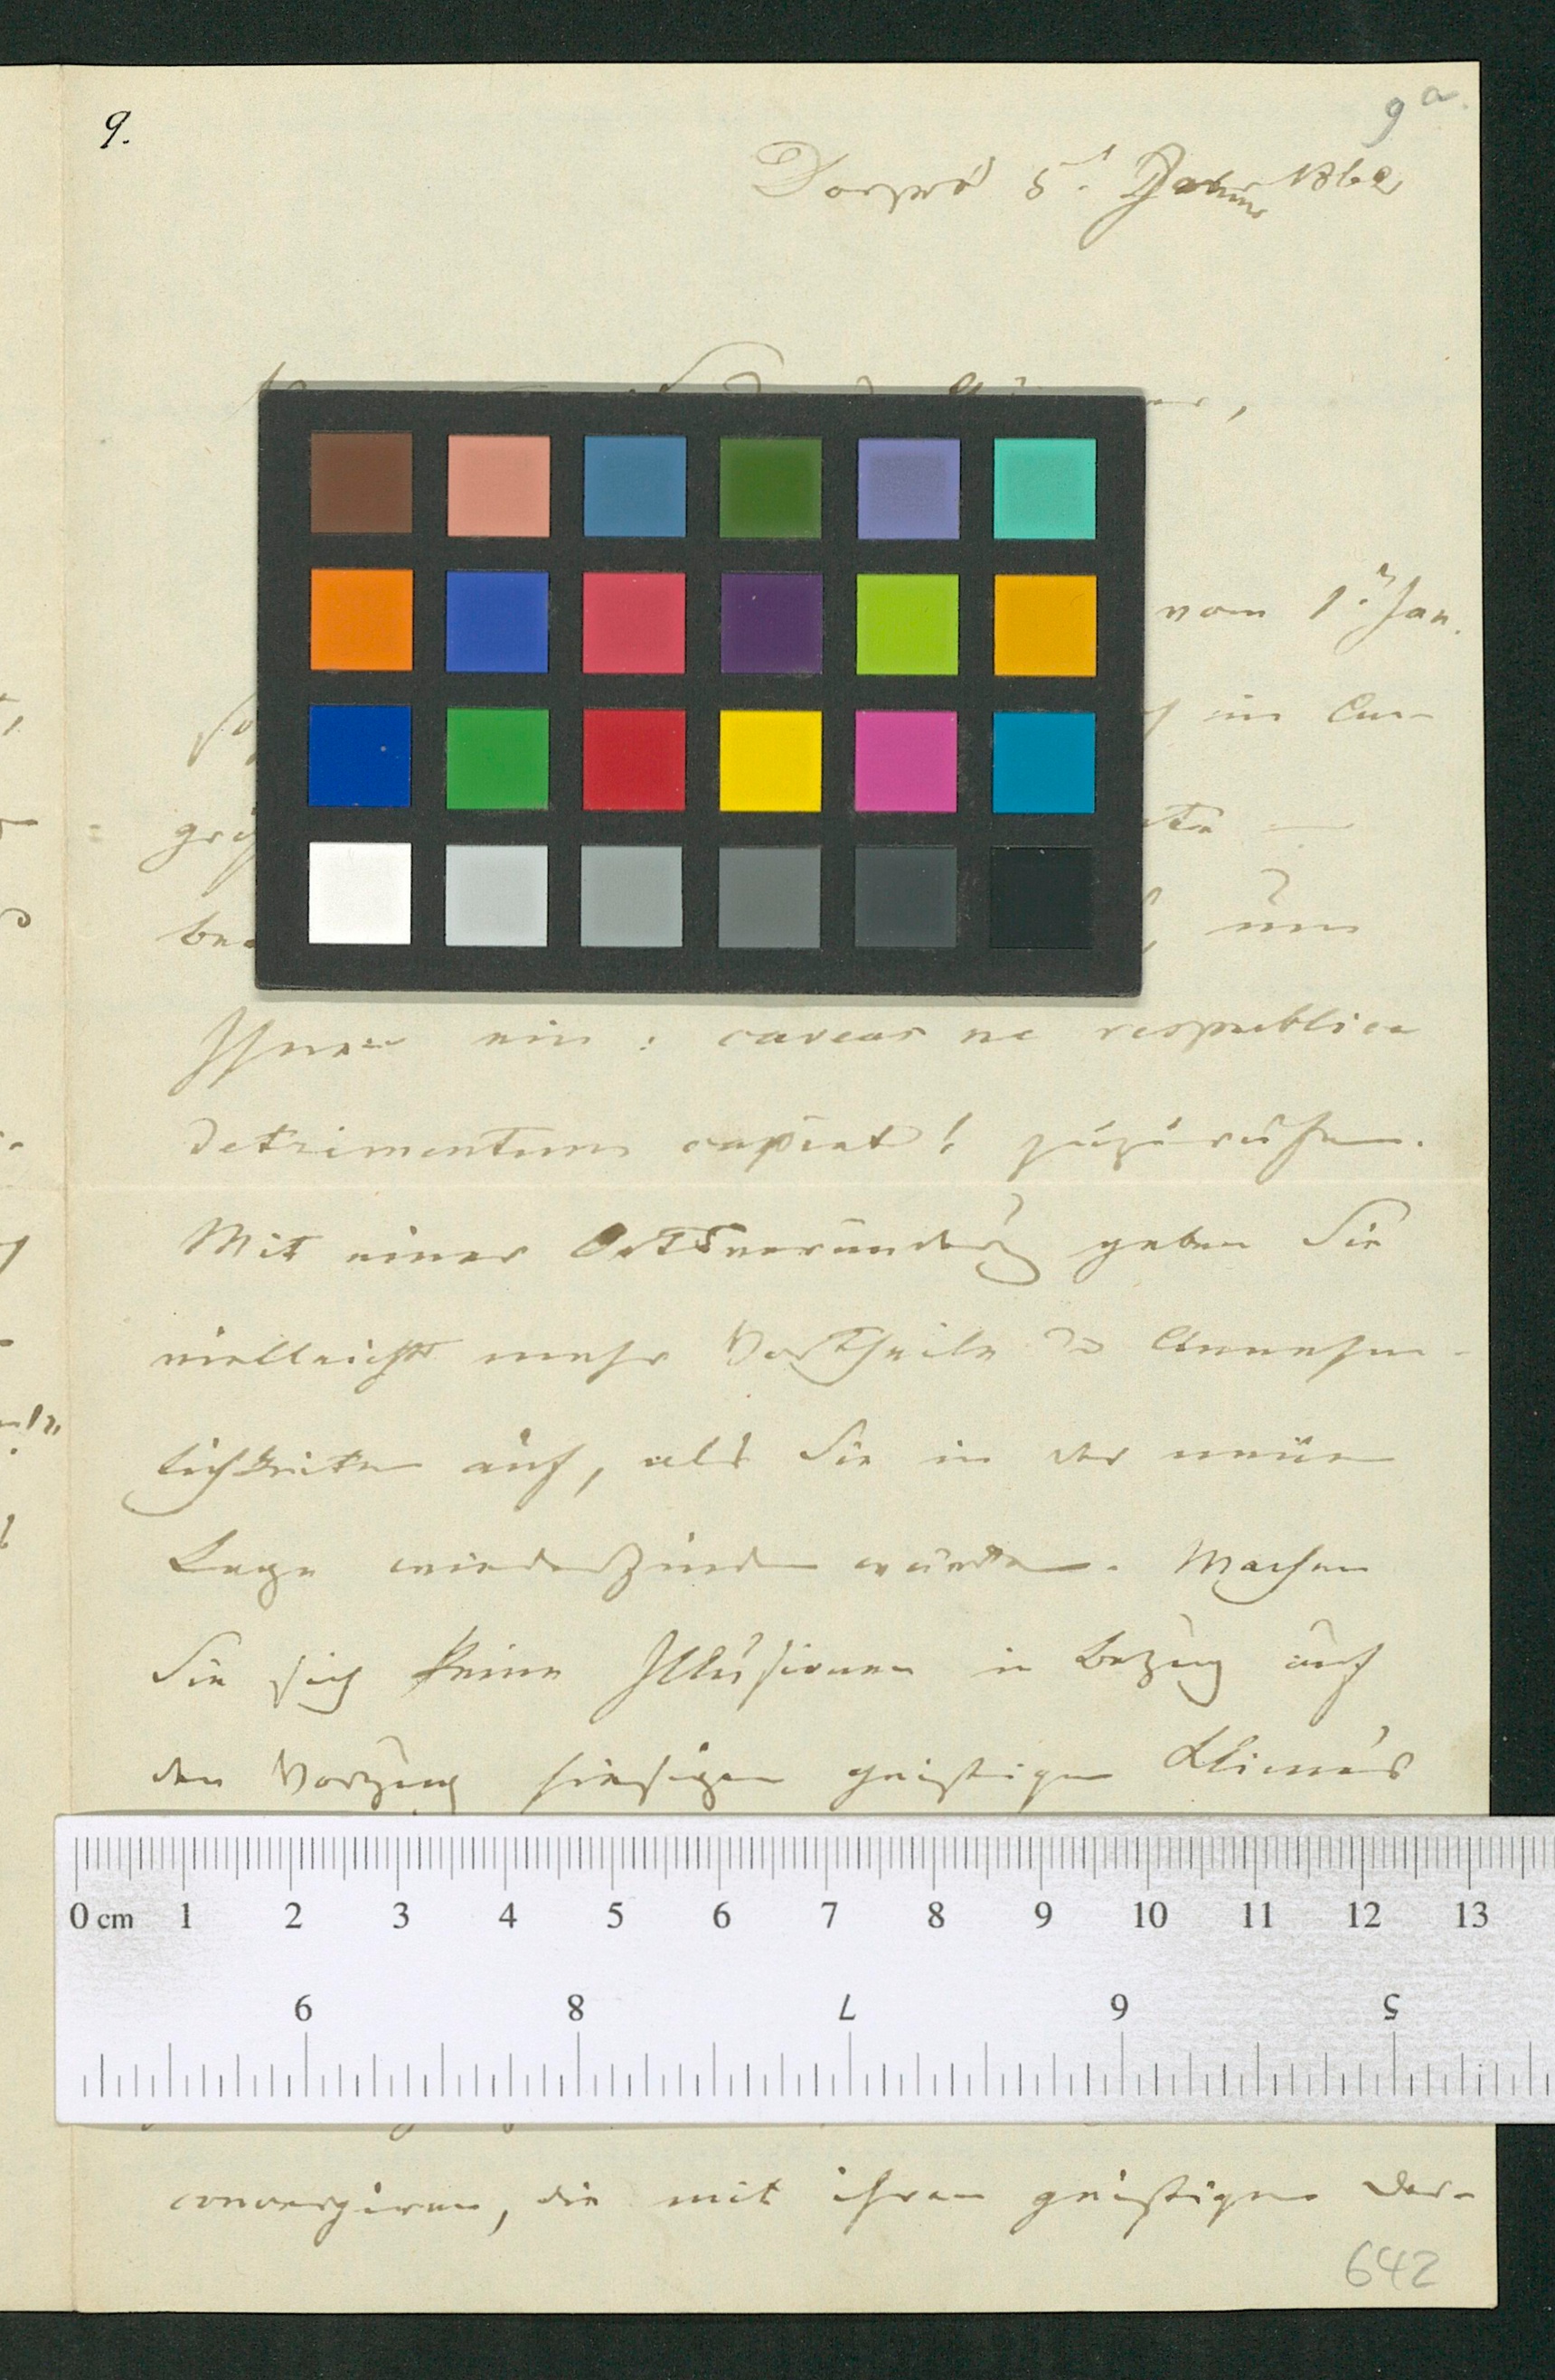 9.
9a.
Dorpat 5. 1862
vom 1. Jan.
im Cur-
gri
be um
Ihnen ein: caveas ne respublica
detrimentum capiat! zuzurufen.
Mit einer Ortsveränderg geben Sie
vielleicht mehr Vortheile u Annehm-
lichkeiten auf, als Sie in der neuen
Lage wiederfinden würden. Machen
Sie sich keine Illusionen in Bezug auf
den Vorzug hiesigen geistigen Klima's
0 cm 1 2 3 4 5 6 7 8 9 10 11 12 13
9 8 7 6 5
convergiren, die mit ihren geistigen Der-
642